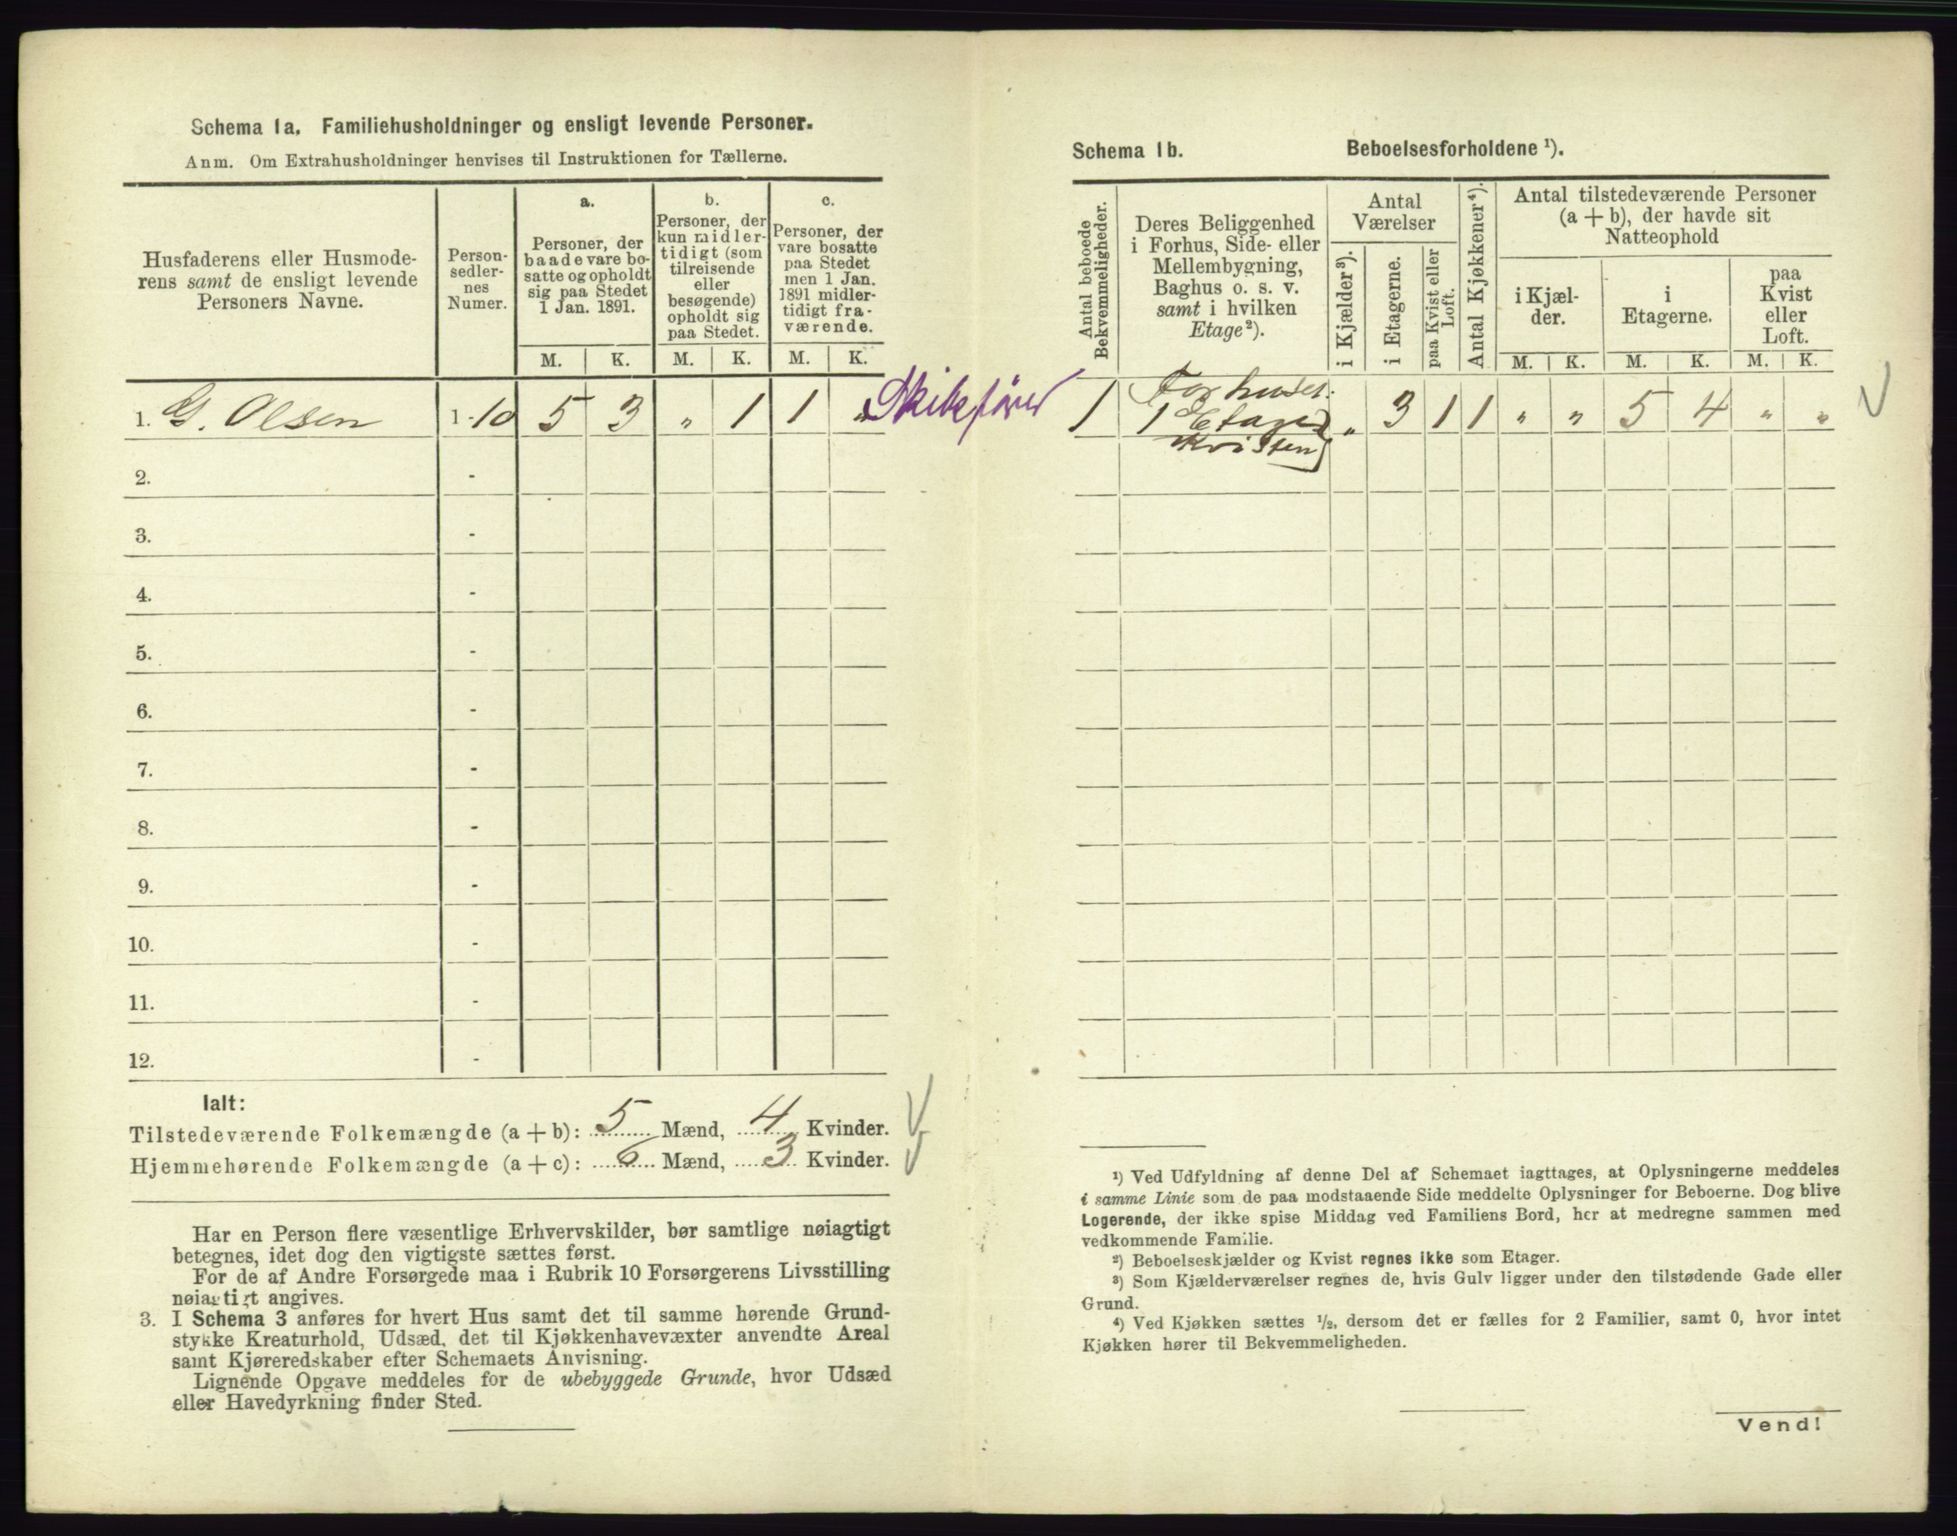 Schema 1a. Familiehusholdninger og ensligt levende Personer.
Anm. Om Extrahusholdninger henvises til Instruktionen for Tællerne.
Husfaderens eller Husmode-
rens samt de ensligt levende
Personers Navne.
Person-
sedler-
nes
Numer.
a.
Personer, der
baade vare bo-
satte og opholdt
sig paa Stedet
1 Jan. 1891.
b.
Personer, der
kun midler-
tidigt (som
tilreisende
eller
besøgende)
opholdt sig
paa Stedet.
c.
Personer, der
vare bosatte
paa Stedet
men 1 Jan.
1891 midler-
tidigt fra-
værende.
M. K. M. K. M. K.
1. G. Olsen 1-10 5 3 " 1 1 " Skibsfører
2. -
3. -
4. -
5. -
6. -
7. -
8. -
9. -
10. -
11. -
12. -
Ialt:
Tilstedeværende Folkemængde (a+b): 5 Mænd, 4 Kvinder.
Hjemmehørende Folkemængde (a+c): 6 Mænd, 3 Kvinder.
Har en Person flere væsentlige Erhvervskilder, bør samtlige nøiagtigt
betegnes, idet dog den vigtigste sættes først.
For de af Andre Forsørgede maa i Rubrik 10 Forsørgerens Livsstilling
nøiagtigt angives.
3. I Schema 3 anføres for hvert Hus samt det til samme hørende Grund-
stykke Kreaturhold, Udsæd, det til Kjøkkenhavevæxter anvendte Areal
samt Kjøreredskaber efter Schemaets Anvisning.
Lignende Opgave meddeles for de ubebyggede Grunde, hvor Udsæd
eller Havedyrkning finder Sted.
Schema 1b. Beboelsesforholdene ¹).
Antal beboede
Bekvemmeligheder.
Deres Beliggenhed
i Forhus, Side- eller
Mellembygning,
Baghus o. s. v.
samt i hvilken
Etage²).
Antal
Værelser
i Kjælder³).
i Etagerne.
paa Kvist eller
Loft.
Antal Kjøkkener⁴).
Antal tilstedeværende Personer
(a+b), der havde sit
Natteophold
i Kjæl-
der.
i
Etagerne.
paa
Kvist
eller
Loft.
M. K. M. K. M. K.
Forhuset.
1 1 Etage " 3 1 1 " " 5 4 " "
Kvisten
¹) Ved Udfyldning af denne Del af Schemaet iagttages, at Oplysningerne meddeles
i samme Linie som de paa modstaaende Side meddelte Oplysninger for Beboerne. Dog blive
Logerende, der ikke spise Middag ved Familiens Bord, her at medregne sammen med
vedkommende Familie.
²) Beboelseskjælder og Kvist regnes ikke som Etager.
³) Som Kjælderværelser regnes de, hvis Gulv ligger under den tilstødende Gade eller
Grund.
⁴) Ved Kjøkken sættes ½, dersom det er fælles for 2 Familier, samt 0, hvor intet
Kjøkken hører til Bekvemmeligheden.
Vend!